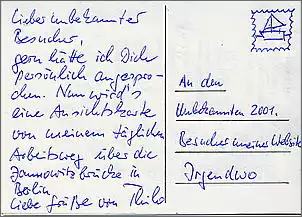 Lieber unbekannter
Besucher,
gern hätte ich Dich
persönlich angespro-
chen. Nun wird's
eine Ansichtskarte
von meinem täglichen
Arbeitsweg über die
Jannowitzbrücke in
Berlin
Liebe Grüße von Thilo
An den
Unbekannten 2001.
Besucher meiner Website
Irgendwo